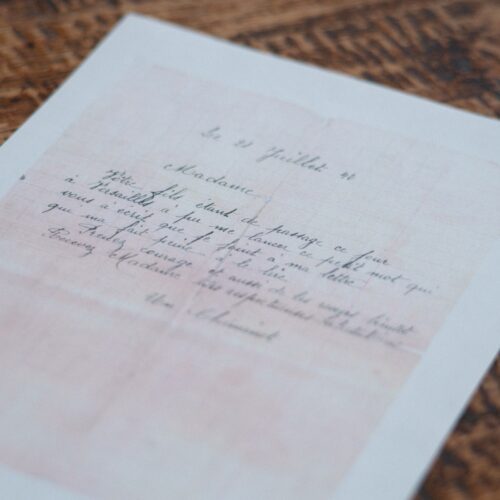 Le 21 Juillet 42
Madame
Votre fils étant de passage ce jour
à Versailles a pu me lancer ce petit mot qui
vous a écrit que je joint à ma lettre
qui ma fait peine à le lire.
Prenez courage et aussi de les
Recevez Madame
Un Cheminot